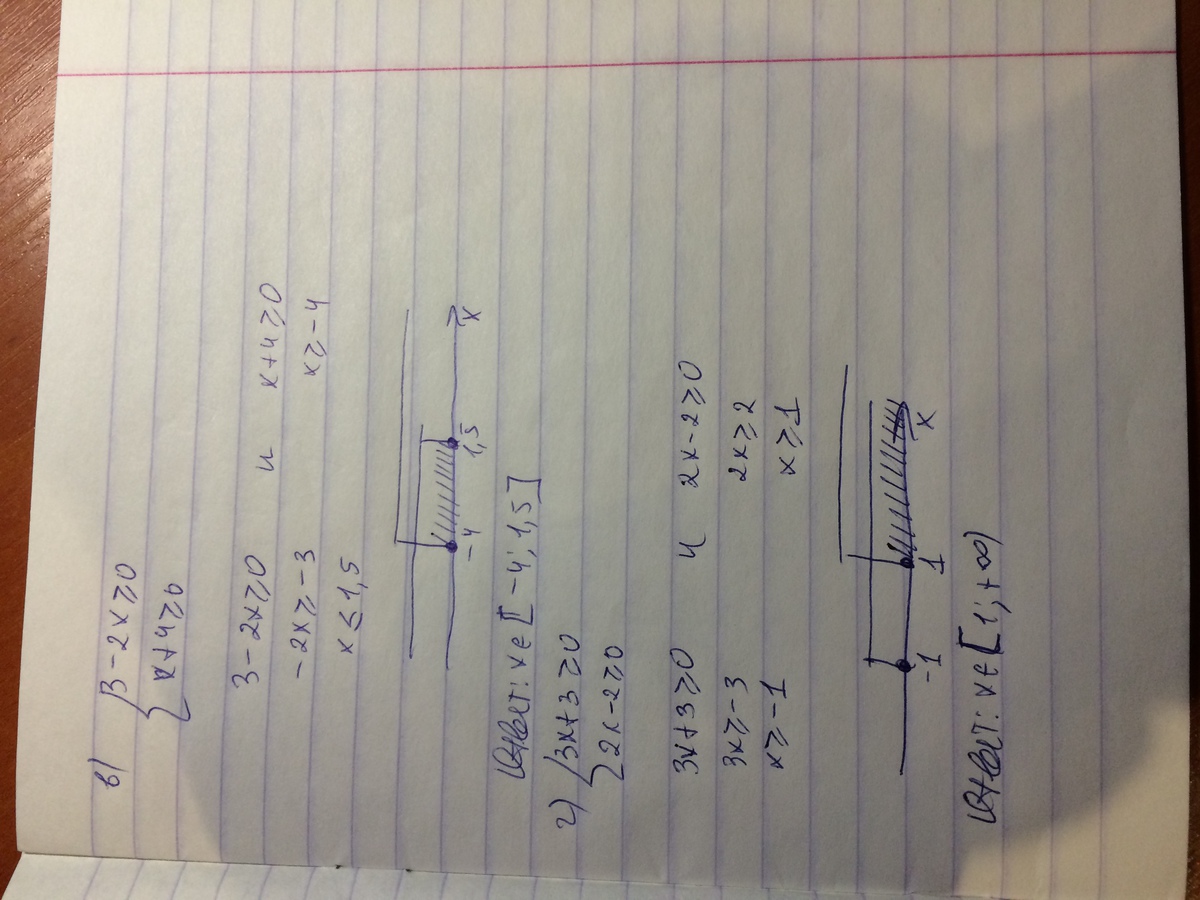 в) { 3-2x≥0
x+4≥0
3-2x≥0 и x+4≥0
-2x≥-3 x≥-4
x≤1,5
-4 1,5 x
Ответ: x∈[-4; 1,5]
г) { 3x+3≥0
2x-2≥0
3x+3≥0 и 2x-2≥0
3x≥-3 2x≥2
x≥-1 x≥1
-1 1 x
Ответ: x∈[1; +∞)